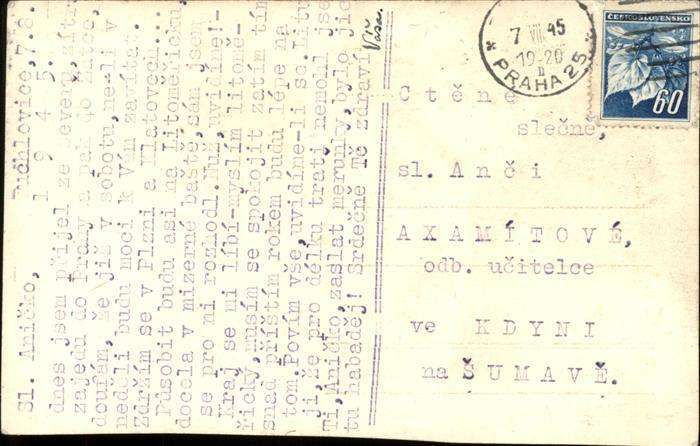 Sl. Aničko,
Puchlovice,7.8.
1 9 4 5.
dnes jsem přijel ze severu, zítra
zajedu do Prahy a pak do Žatce,
doufám, že již v sobotu, ne-li v
neděli budu moci k Vám zavítat.
Zdržím se v Plzni a Klatovech.
Působit budu asi na Litoměřicku,
docela v mizerné baště, sám jsem
se pro ni rozhodl. Nuž, uvidíme!-
Kraj se mi líbí-myslím litomě-
řický, musím se spokojit zatím tím
snad příštím rokem budu lépe na
tom. Povím vše, uvidíme-li se. Litu
ji, že pro délku trati nemohl jse
Ti, Aničko, zaslat meruňky, bylo jic
tu nabaděj! Srdečně Tě zdraví
Váša.
7 VIII 45
19-20
II
* PRAHA 25 *
ČESKOSLOVENSKO
60
Ctěné
slečně,
sl. Anči
AXAMÍTOVÉ,
odb. učitelce
ve KDYNI
na ŠUMAVĚ.